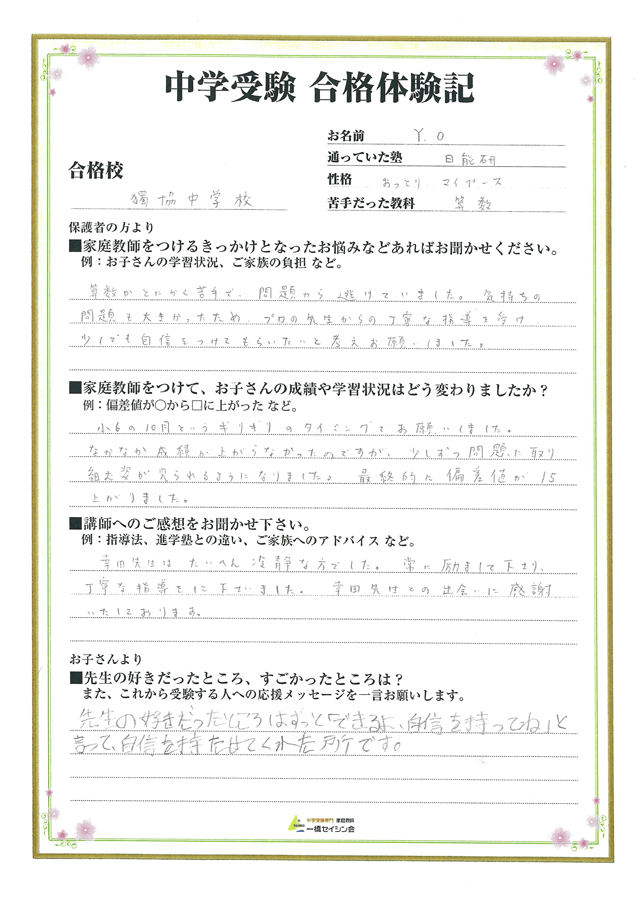 中学受験 合格体験記
お名前 Y.O
通っていた塾 日能研
合格校
性格 おっとり マイペース
獨協中学校
苦手だった教科 算数
保護者の方より
■家庭教師をつけるきっかけとなったお悩みなどあればお聞かせください。
例：お子さんの学習状況、ご家族の負担 など。
算数がとにかく苦手で、問題から逃げていました。気持ちの
問題も大きかったため、プロの先生からの丁寧な指導を受け
少しでも自信をつけてもらいたいと考えお願いしました。
■家庭教師をつけて、お子さんの成績や学習状況はどう変わりましたか？
例：偏差値が〇から□に上がった など。
小6の10月というギリギリのタイミングでお願いしました。
なかなか成績が上がらなかったのですが、少しずつ問題に取り
組む姿が見られるようになりました。最終的に偏差値が15
上がりました。
■講師へのご感想をお聞かせ下さい。
例：指導法、進学塾との違い、ご家族へのアドバイス など。
幸田先生はたいへん冷静な方でした。常に励まして下さり、
丁寧な指導をして下さいました。幸田先生との出会いに感謝
いたしております。
お子さんより
■先生の好きだったところ、すごかったところは？
また、これから受験する人への応援メッセージを一言お願いします。
先生の好きだったところはずっと「できるよ、自信を持ってね」と
言って、自信を持たせてくれた所です。
中学受験専門 家庭教師
一橋セイシン会